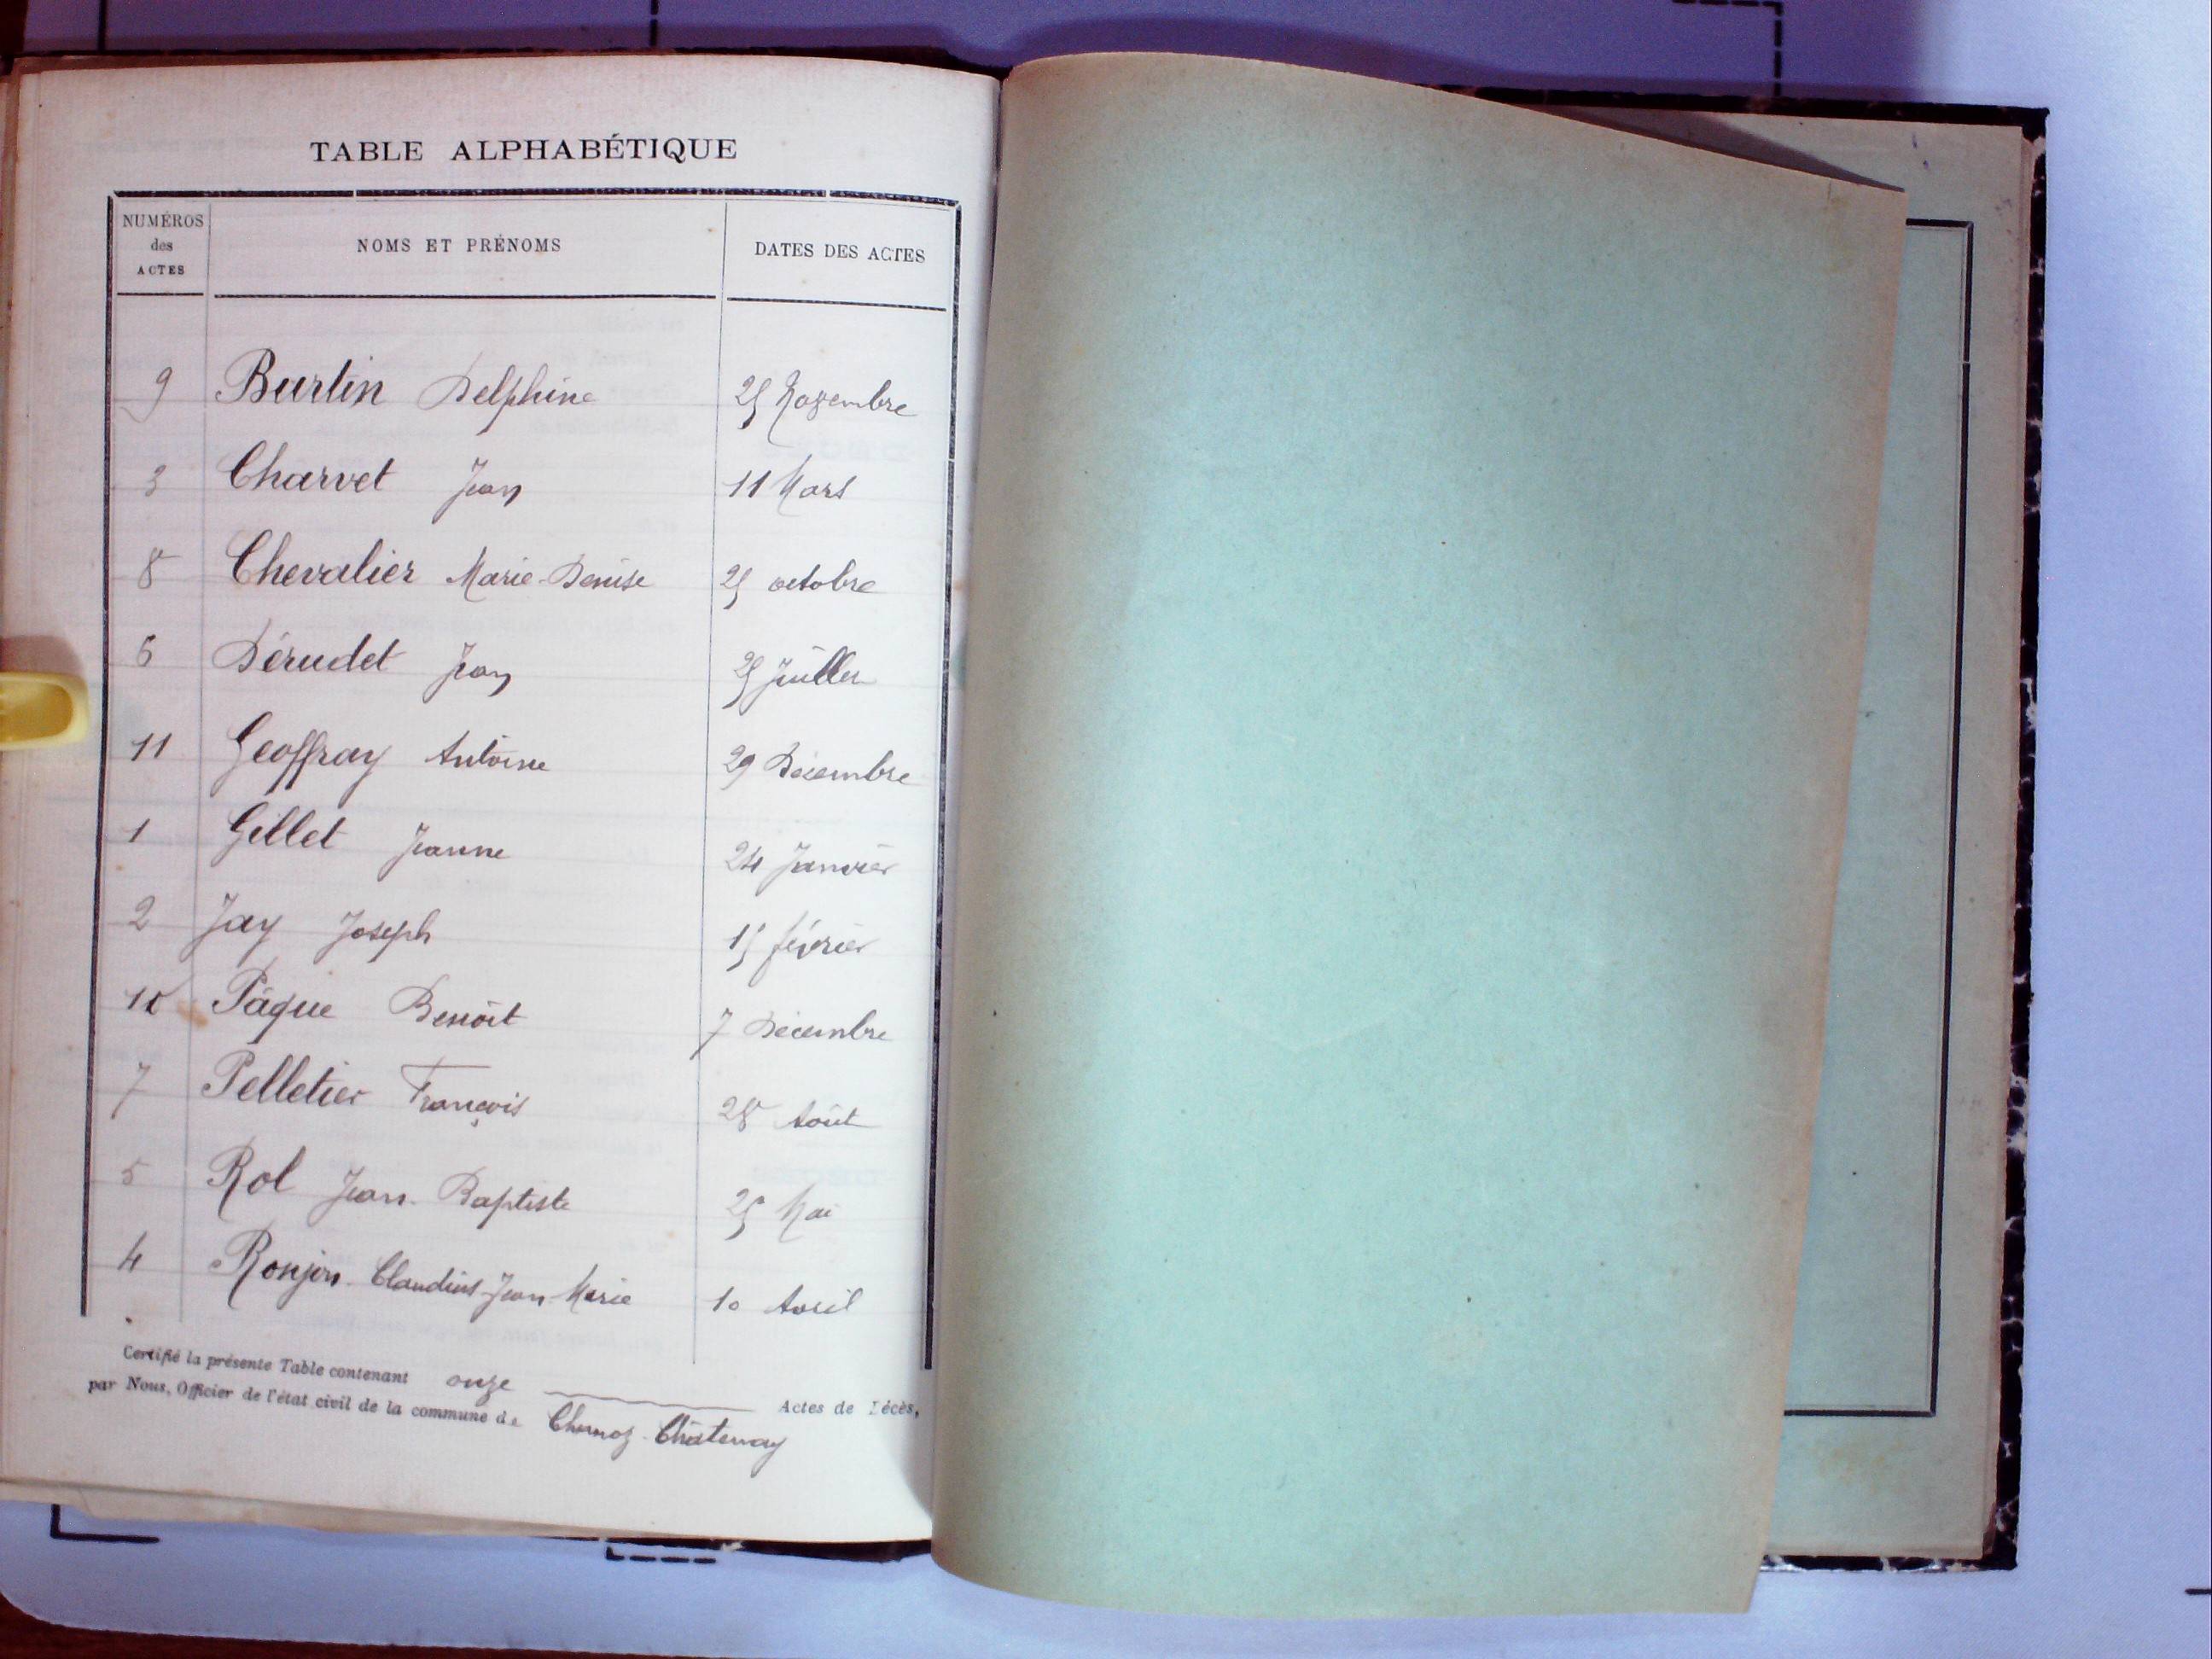 TABLE ALPHABÉTIQUE
NUMÉROS des ACTES NOMS ET PRÉNOMS DATES DES ACTES
9 Burtin Delphine 25 Novembre
3 Charvet Jean 11 Mars
8 Chevalier Marie-Denise 25 octobre
6 Dérudet Jean 25 Juillet
11 Geoffray Antoine 29 Décembre
1 Gillet Jeanne 24 Janvier
2 Jay Joseph 15 février
10 Pâque Benoît 7 Décembre
7 Pelletier François 28 Août
5 Rol Jean-Baptiste 25 Mai
4 Ronjon Claudius-Jean-Marie 10 Avril
Certifié la présente Table contenant onze Actes de Décès,
par Nous, Officier de l'état civil de la commune de Charnoz-Châtenay